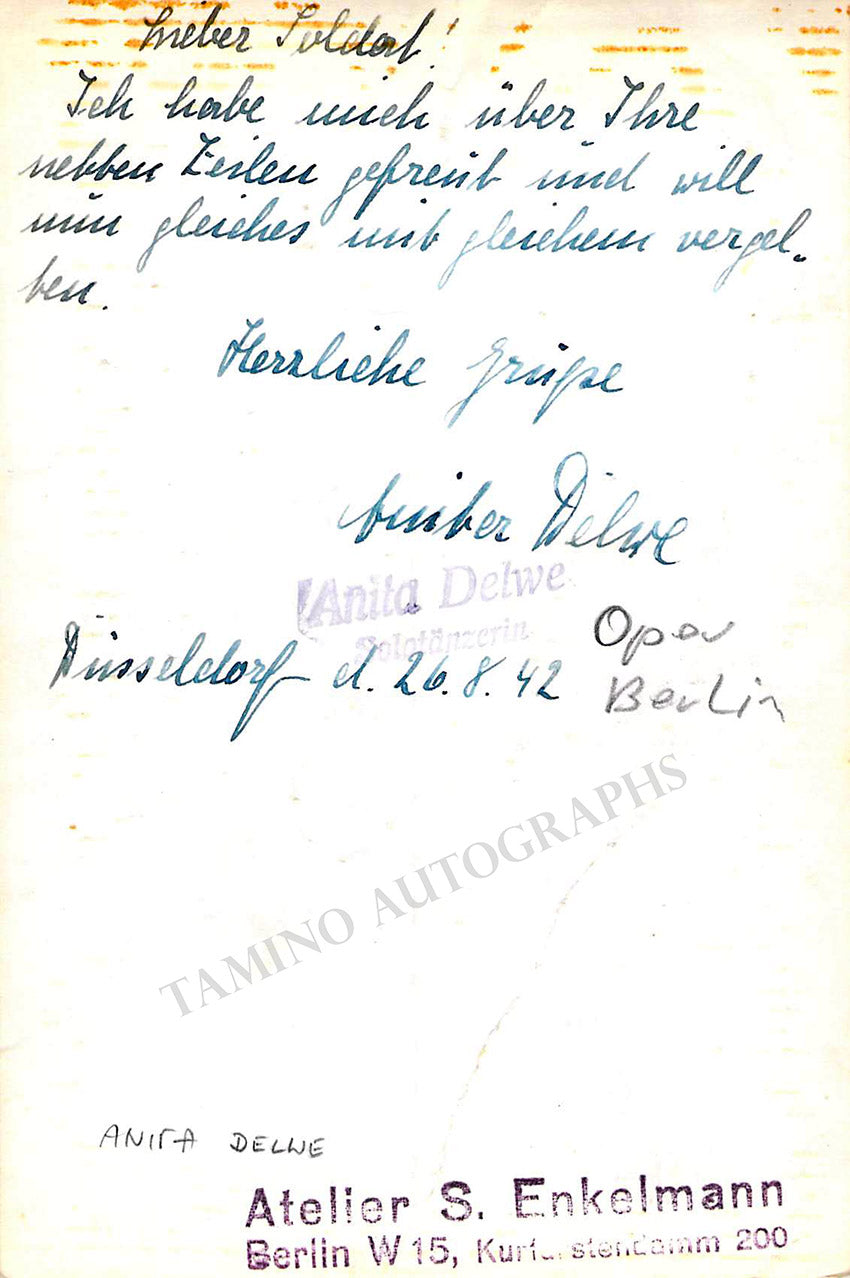 Lieber Soldat!
Ich habe mich über Ihre
netten Zeilen gefreut und will
nun gleiches mit gleichem vergel-
ten.
Herzliche Grüße
Delwe
Anita Delwe
Solotänzerin
Düsseldorf d. 26.8.42
Oper
Berlin
TAMINO AUTOGRAPHS
ANITA DELWE
Atelier S. Enkelmann
Berlin W 15, Kurfürstendamm 200